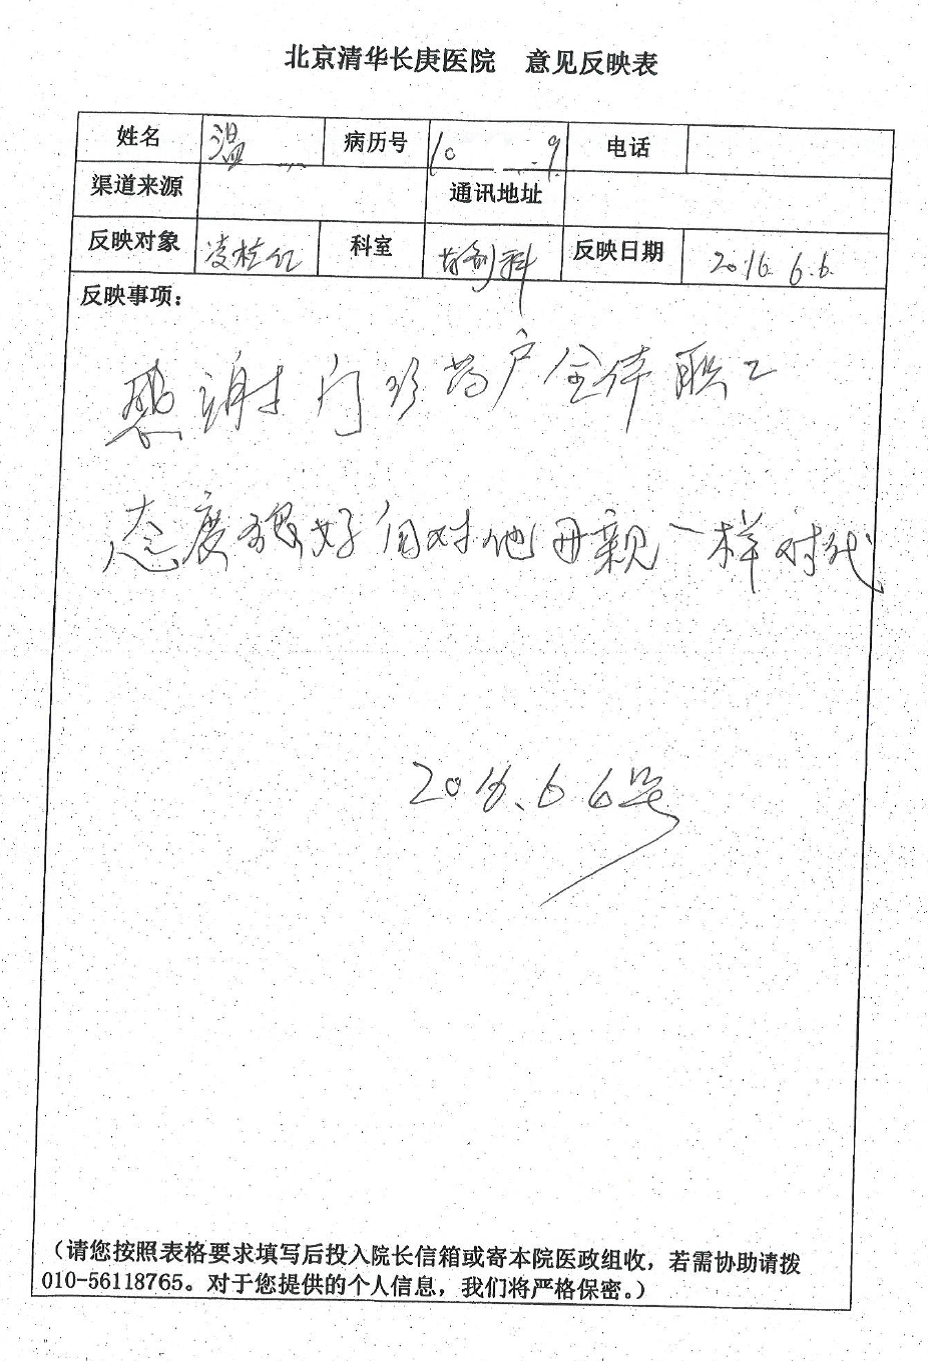 北京清华长庚医院 意见反映表
姓名 温 病历号 10 9 电话
渠道来源 通讯地址
反映对象 凌桂红 科室 药剂科 反映日期 2016.6.6
反映事项：
感谢门珍药户全体职工
态度很好 对他母亲一样对代
2016.6 6号
（请您按照表格要求填写后投入院长信箱或寄本院医政组收，若需协助请拨
010-56118765。对于您提供的个人信息，我们将严格保密。）